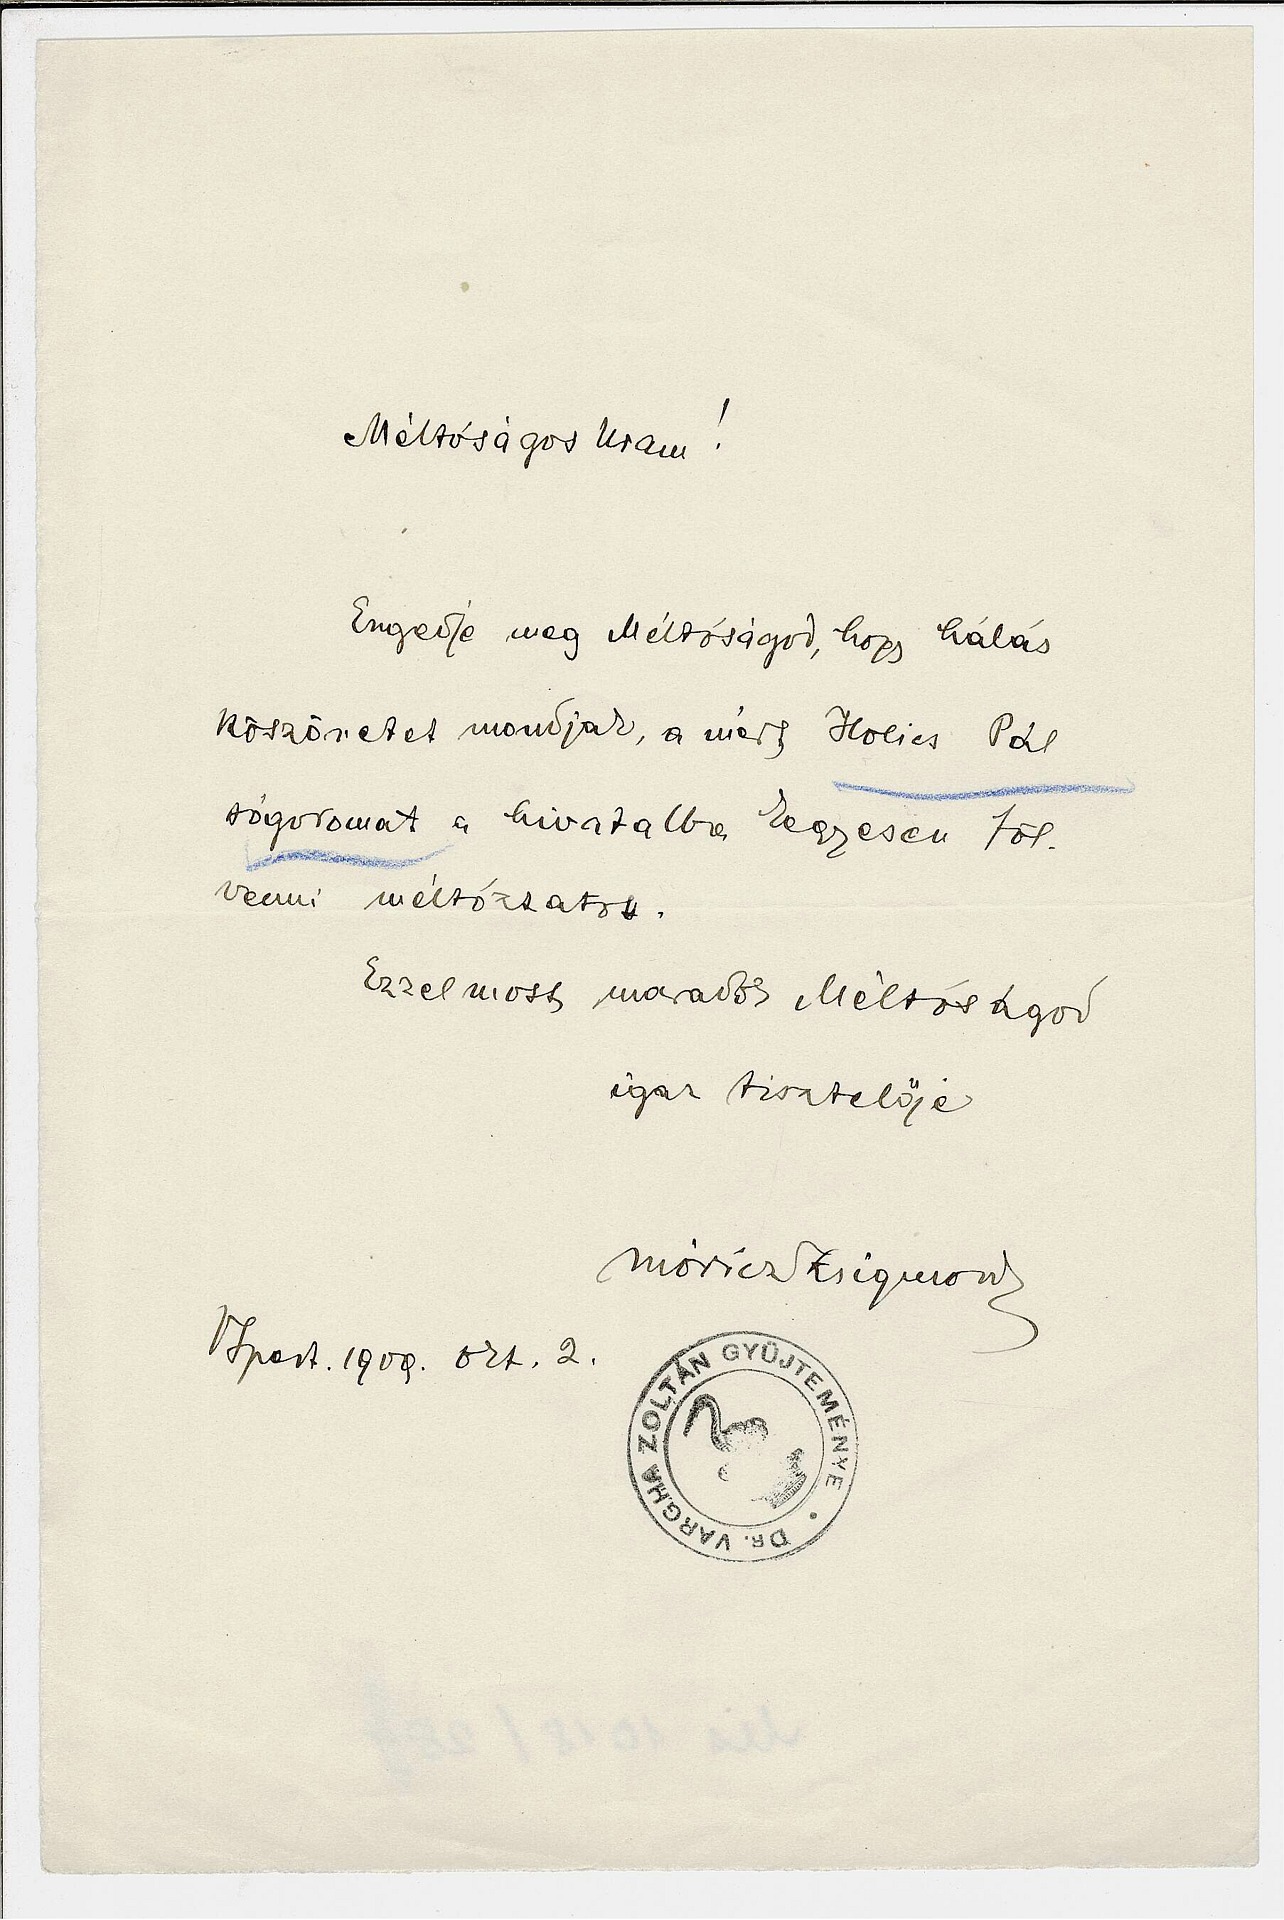 Méltóságos Uram!
Engedje meg Méltóságod, hogy hálás
köszönetet mondjak, a miért Holics Pál
sógoromat a hivatalba kegyesen föl-
venni méltóztatott.
Ezzel most maradok Méltóságod
igaz tisztelője
Móricz Zsigmond
Bpest. 1909. okt. 2.
DR. VARGHA ZOLTÁN GYŰJTEMÉNYE